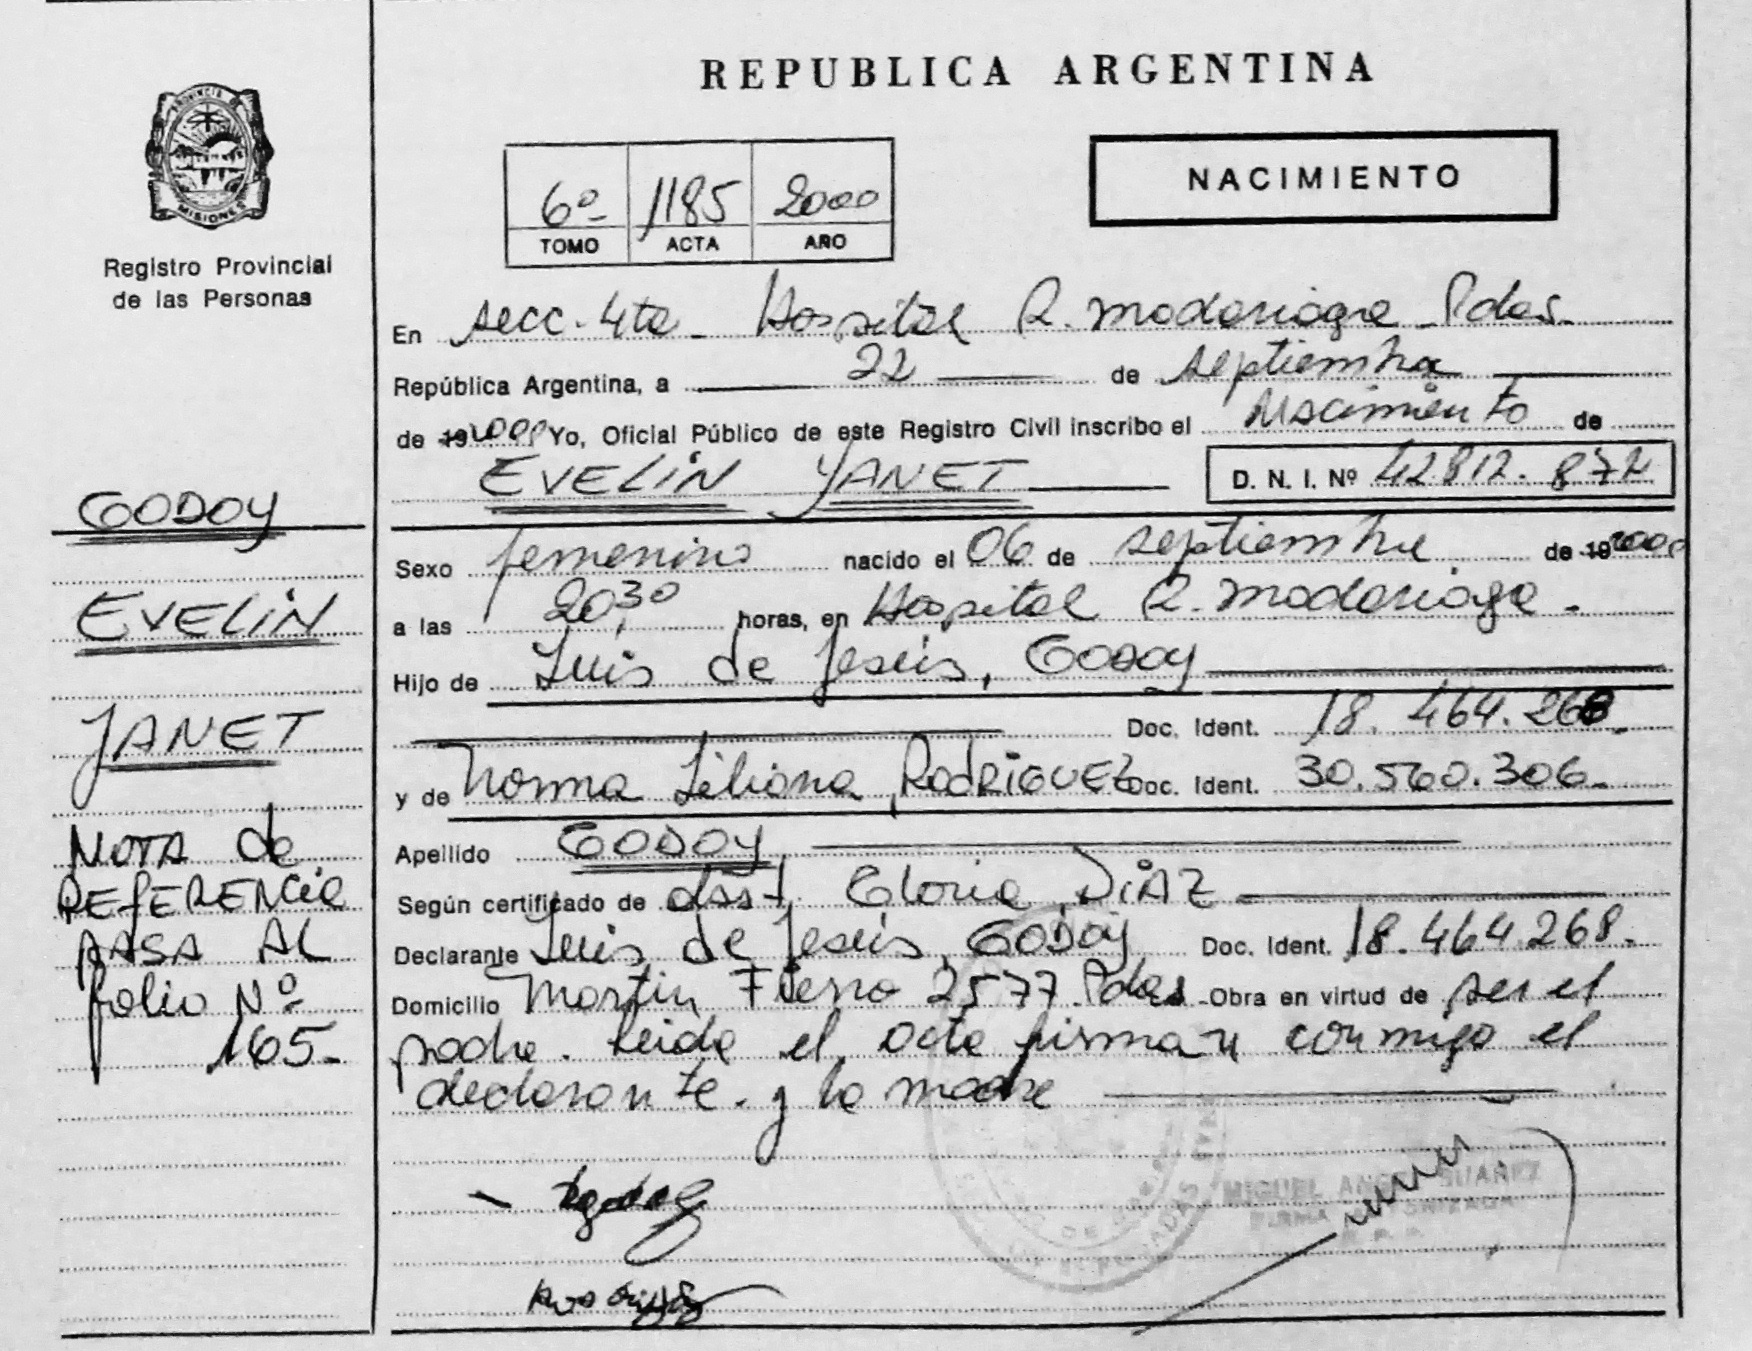 REPUBLICA ARGENTINA
PROVINCIA
MISIONES
Registro Provincial
de las Personas
6º- 1185 2000
TOMO ACTA AÑO
NACIMIENTO
En secc. 4ta - Hospital R. Madariaga - Pdas.
República Argentina, a 22 de septiembre
de 19 2000 Yo, Oficial Público de este Registro Civil inscribo el Nacimiento de
EVELIN YANET D. N. I. Nº 42.812.872
Sexo femenino nacido el 06 de septiembre de 19 2000
a las 20,30 horas, en Hospital R. Madariaga -
Hijo de Luis de Jesús, GODOY
Doc. Ident. 18.464.268-
y de Norma Liliana, RODRIGUEZ Doc. Ident. 30.560.306-
Apellido GODOY
Según certificado de obst. Gloria DiAZ
Declarante Luis de Jesús, GODOY Doc. Ident. 18.464.268-
Domicilio Martin Fierro 2577. Pdas Obra en virtud de ser el
padre. Leida el acta firman conmigo el
declarante y la madre
GODOY
EVELIN
YANET
NOTA de
REFERENCia
PASA AL
folio Nº
165-
MIGUEL ANGEL SUAREZ
FIRMA AUTORIZADA